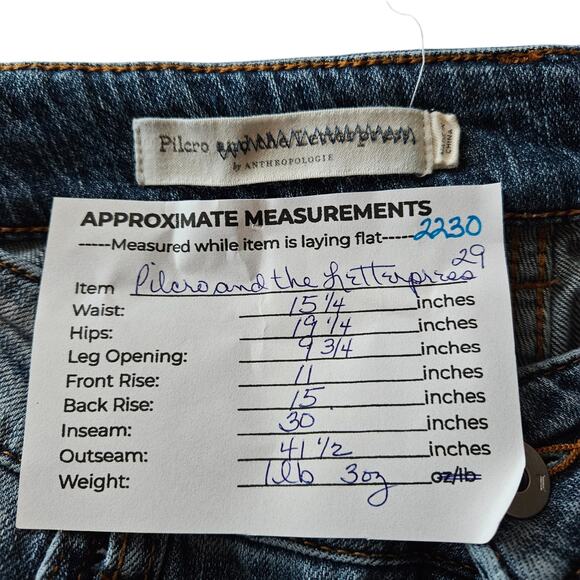 Pilcro and the Letterpress
by ANTHROPOLOGIE
CHINA
APPROXIMATE MEASUREMENTS
-----Measured while item is laying flat----- 2230
29
Item Pilcro and the Letterpress
Waist: 15 1/4 inches
Hips: 19 1/4 inches
Leg Opening: 9 3/4 inches
Front Rise: 11 inches
Back Rise: 15 inches
Inseam: 30 inches
Outseam: 41 1/2 inches
Weight: 1lb 3oz oz/lb